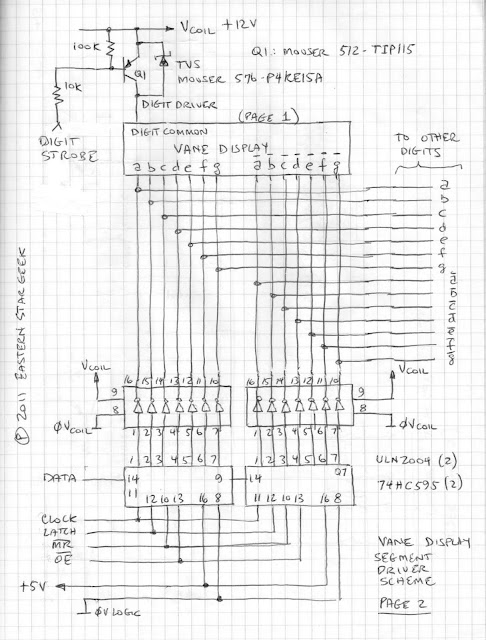 VCOIL +12V
100K
Q1: MOUSER 512-TIP115
Q1
TVS
MOUSER 576-P4KE15A
10K
DIGIT DRIVER
(PAGE 1)
DIGIT STROBE
DIGIT COMMON
VANE DISPLAY
a b c d e f g a̅ b̅ c̅ d̅ e̅ f̅ g̅
TO OTHER
DIGITS
a
b
c
d
e
f
g
a̅
b̅
c̅
d̅
e̅
f̅
g̅
Ⓟ 2011 EASTERN STAR GEEK
VCOIL
16 15 14 13 12 11 10
16 15 14 13 12 11 10
VCOIL
9
9
8
8
ØVCOIL
ØVCOIL
1 2 3 4 5 6 7
1 2 3 4 5 6 7
1 2 3 4 5 6 7
1 2 3 4 5 6 7
ULN2004 (2)
74HC595 (2)
DATA
14
9
14
Q7
11 12 10 13 16 8
11 12 10 13 16 8
CLOCK
LATCH
M̅R̅
O̅E̅
+5V
ØVLOGIC
VANE DISPLAY
SEGMENT
DRIVER
SCHEME
PAGE 2